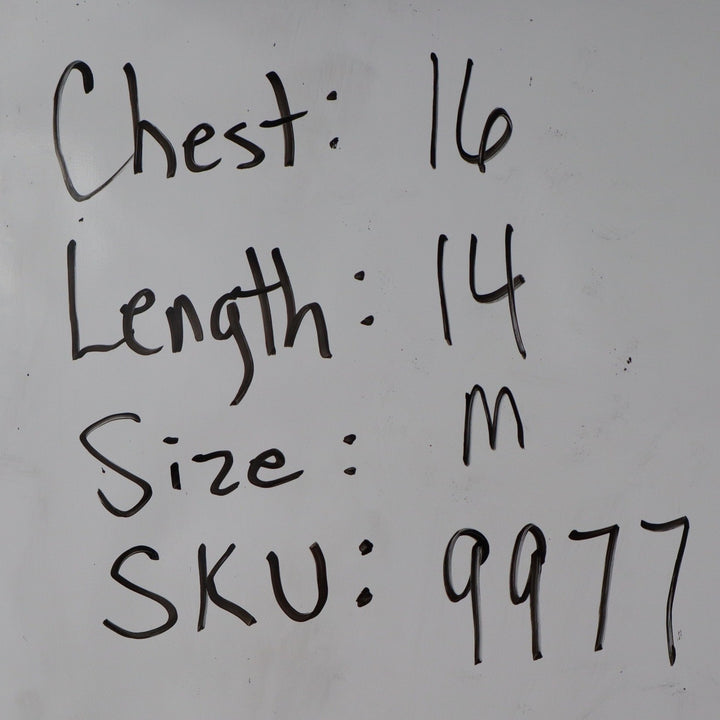 Chest: 16
Length: 14
Size: M
SKU: 9977